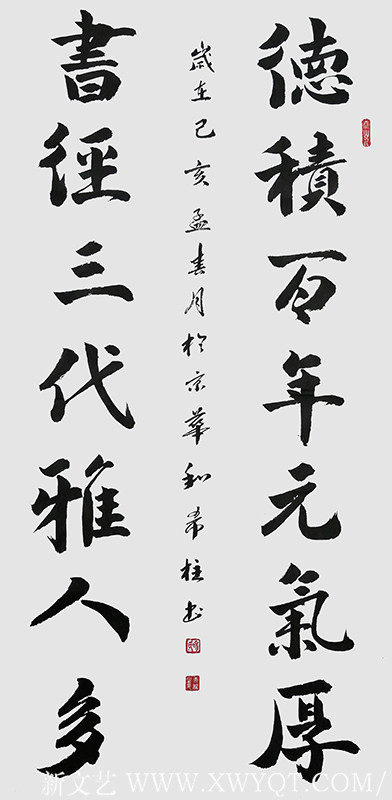 德積百年元氣厚
書徑三代雅人多
歲在己亥孟春月於京華劉希柱書
新文艺 WWW.XWYQT.COM/